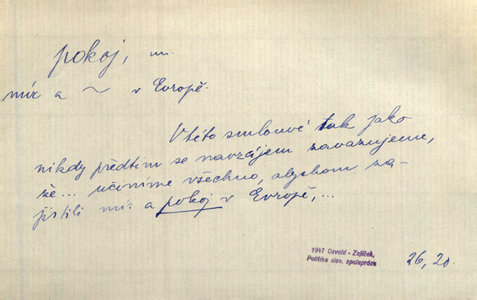 pokoj, m.
mír a ~ v Evropě.
V této smlouvě tak jako
nikdy předtím se navzájem zavazujeme,
že... učiníme všechno, abychom za-
jistili mír a pokoj v Evropě,...
1947 Osvald - Zajíček,
Politika slov. spolupráce
26, 20.